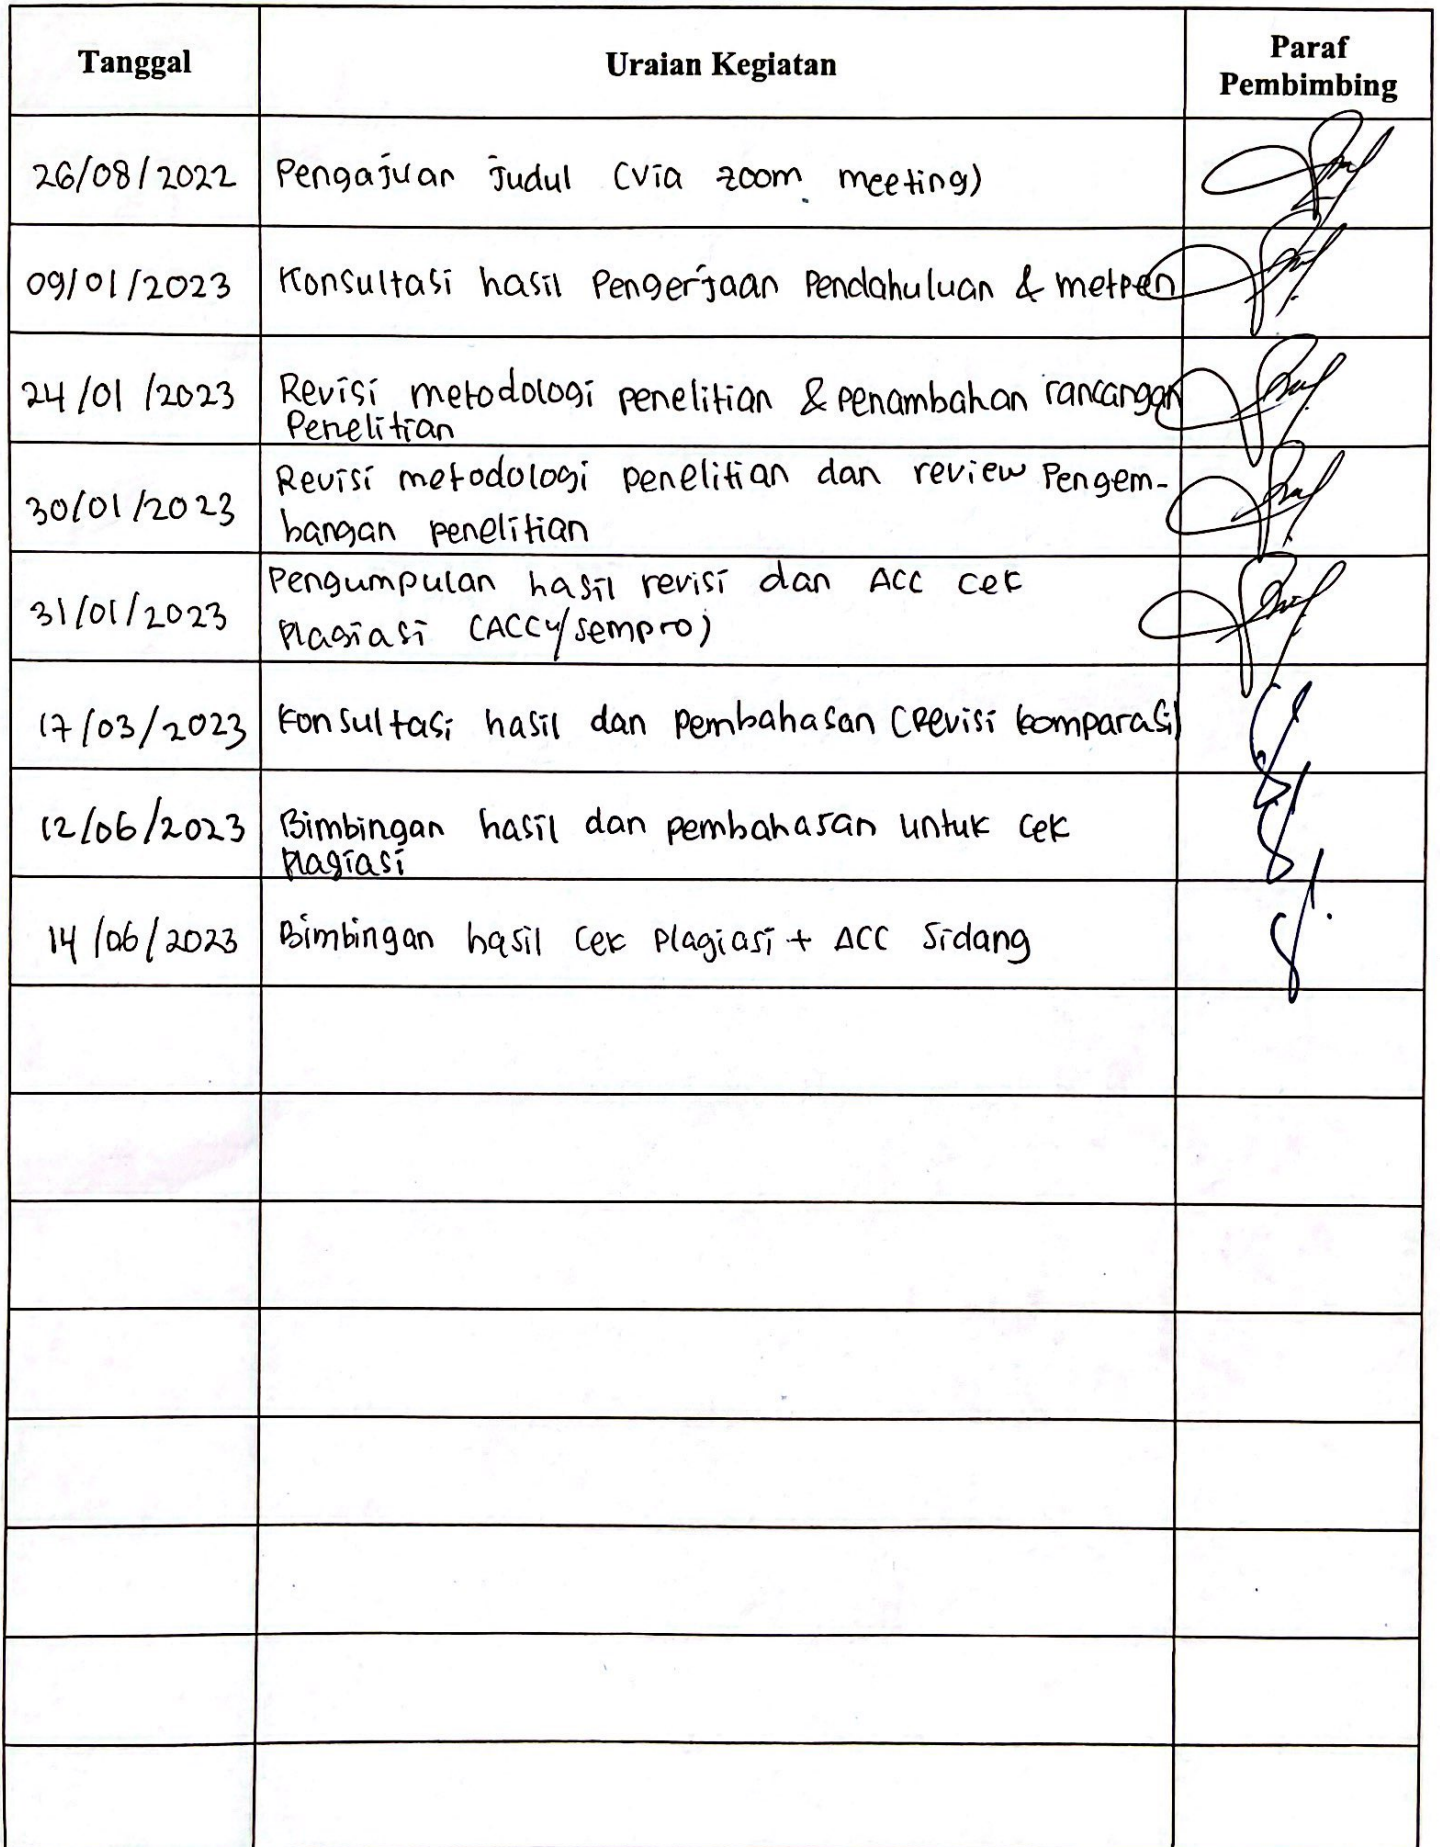 Tanggal Uraian Kegiatan Paraf Pembimbing
26/08/2022 Pengajuan judul (via zoom meeting)
09/01/2023 Konsultasi hasil Pengerjaan Pendahuluan & metpen
24/01/2023 Revisi metodologi penelitian & penambahan rancangan
Penelitian
30/01/2023 Revisi metodologi penelitian dan review Pengem-
bangan penelitian
31/01/2023 Pengumpulan hasil revisi dan ACC cek
Plagiasi (ACC u/ sempro)
17/03/2023 Konsultasi hasil dan Pembahasan (Revisi komparasi)
12/06/2023 Bimbingan hasil dan pembahasan untuk cek
Plagiasi
14/06/2023 Bimbingan hasil cek Plagiasi + ACC Sidang